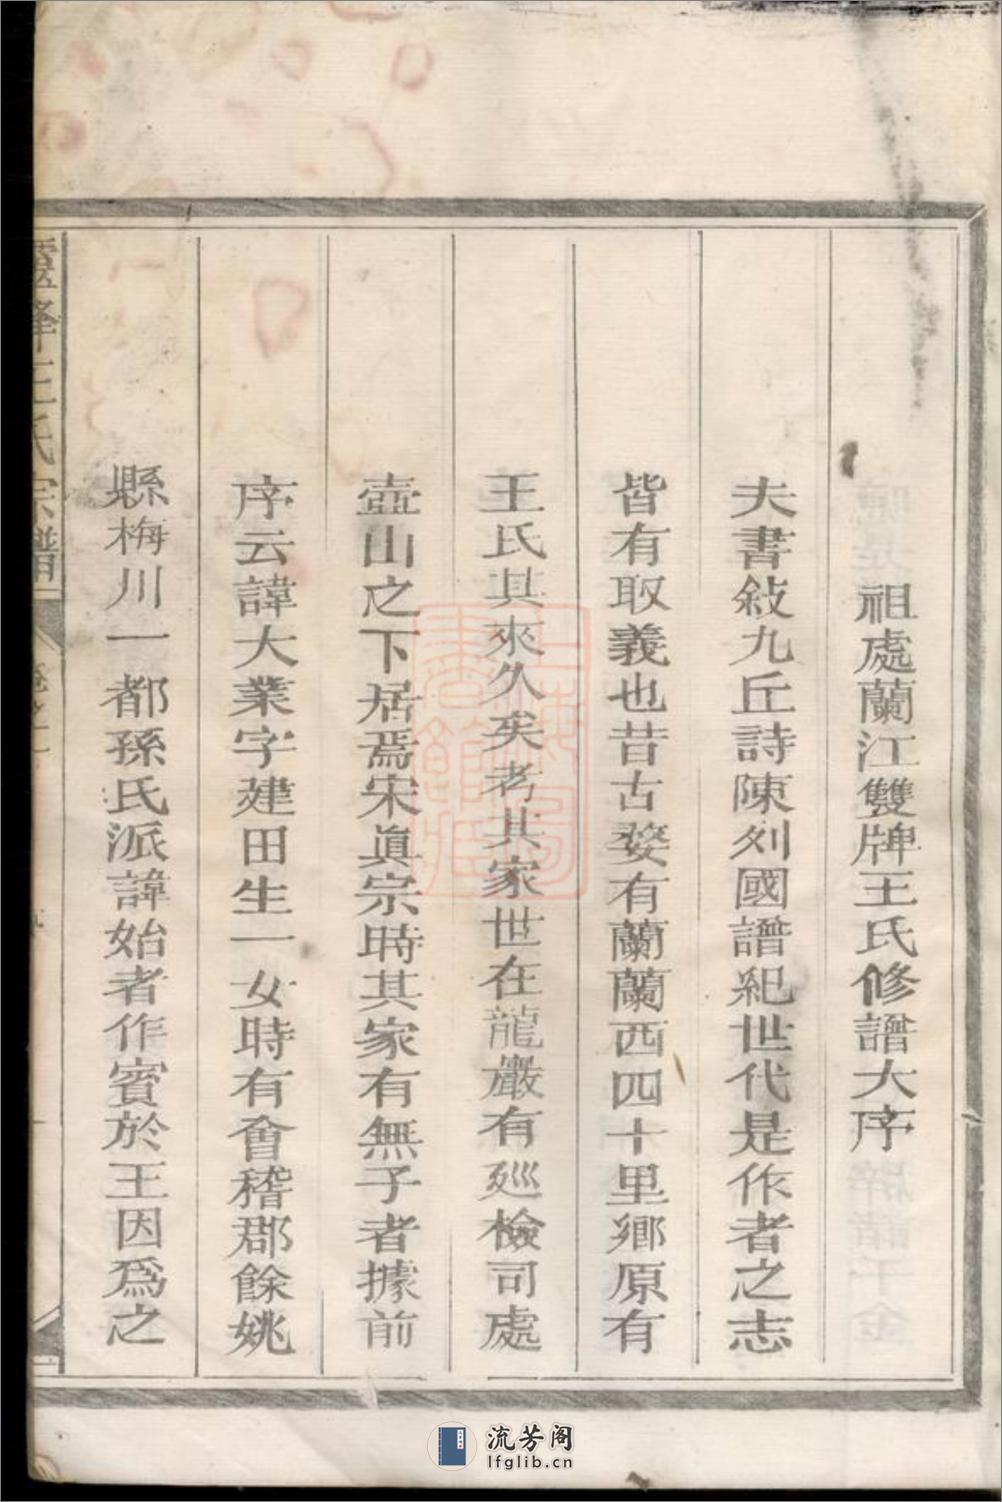 祖處蘭江雙牌王氏修譜大序
夫書敍九丘詩陳列國譜紀世代是作者之志
皆有取義也昔古婺有蘭蘭西四十里鄉原有
王氏其來久矣考其家世在龍巖有廵檢司處
壺山之下居焉宋眞宗時其家有無子者據前
序云諱大業字建田生一女時有會稽郡餘姚
縣梅川一都孫氏派諱始者作賓於王因爲之
王氏宗譜
卷之一
上海圖書館藏
流芳阁
lfglib.cn